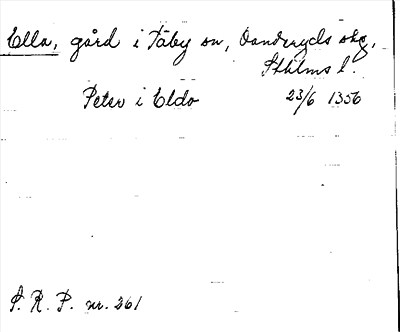 Ella, gård i Täby sn, Danderyds skg,
Sthlms l.
Peter i Eldo 23/6 1356
S. R. P. nr. 261